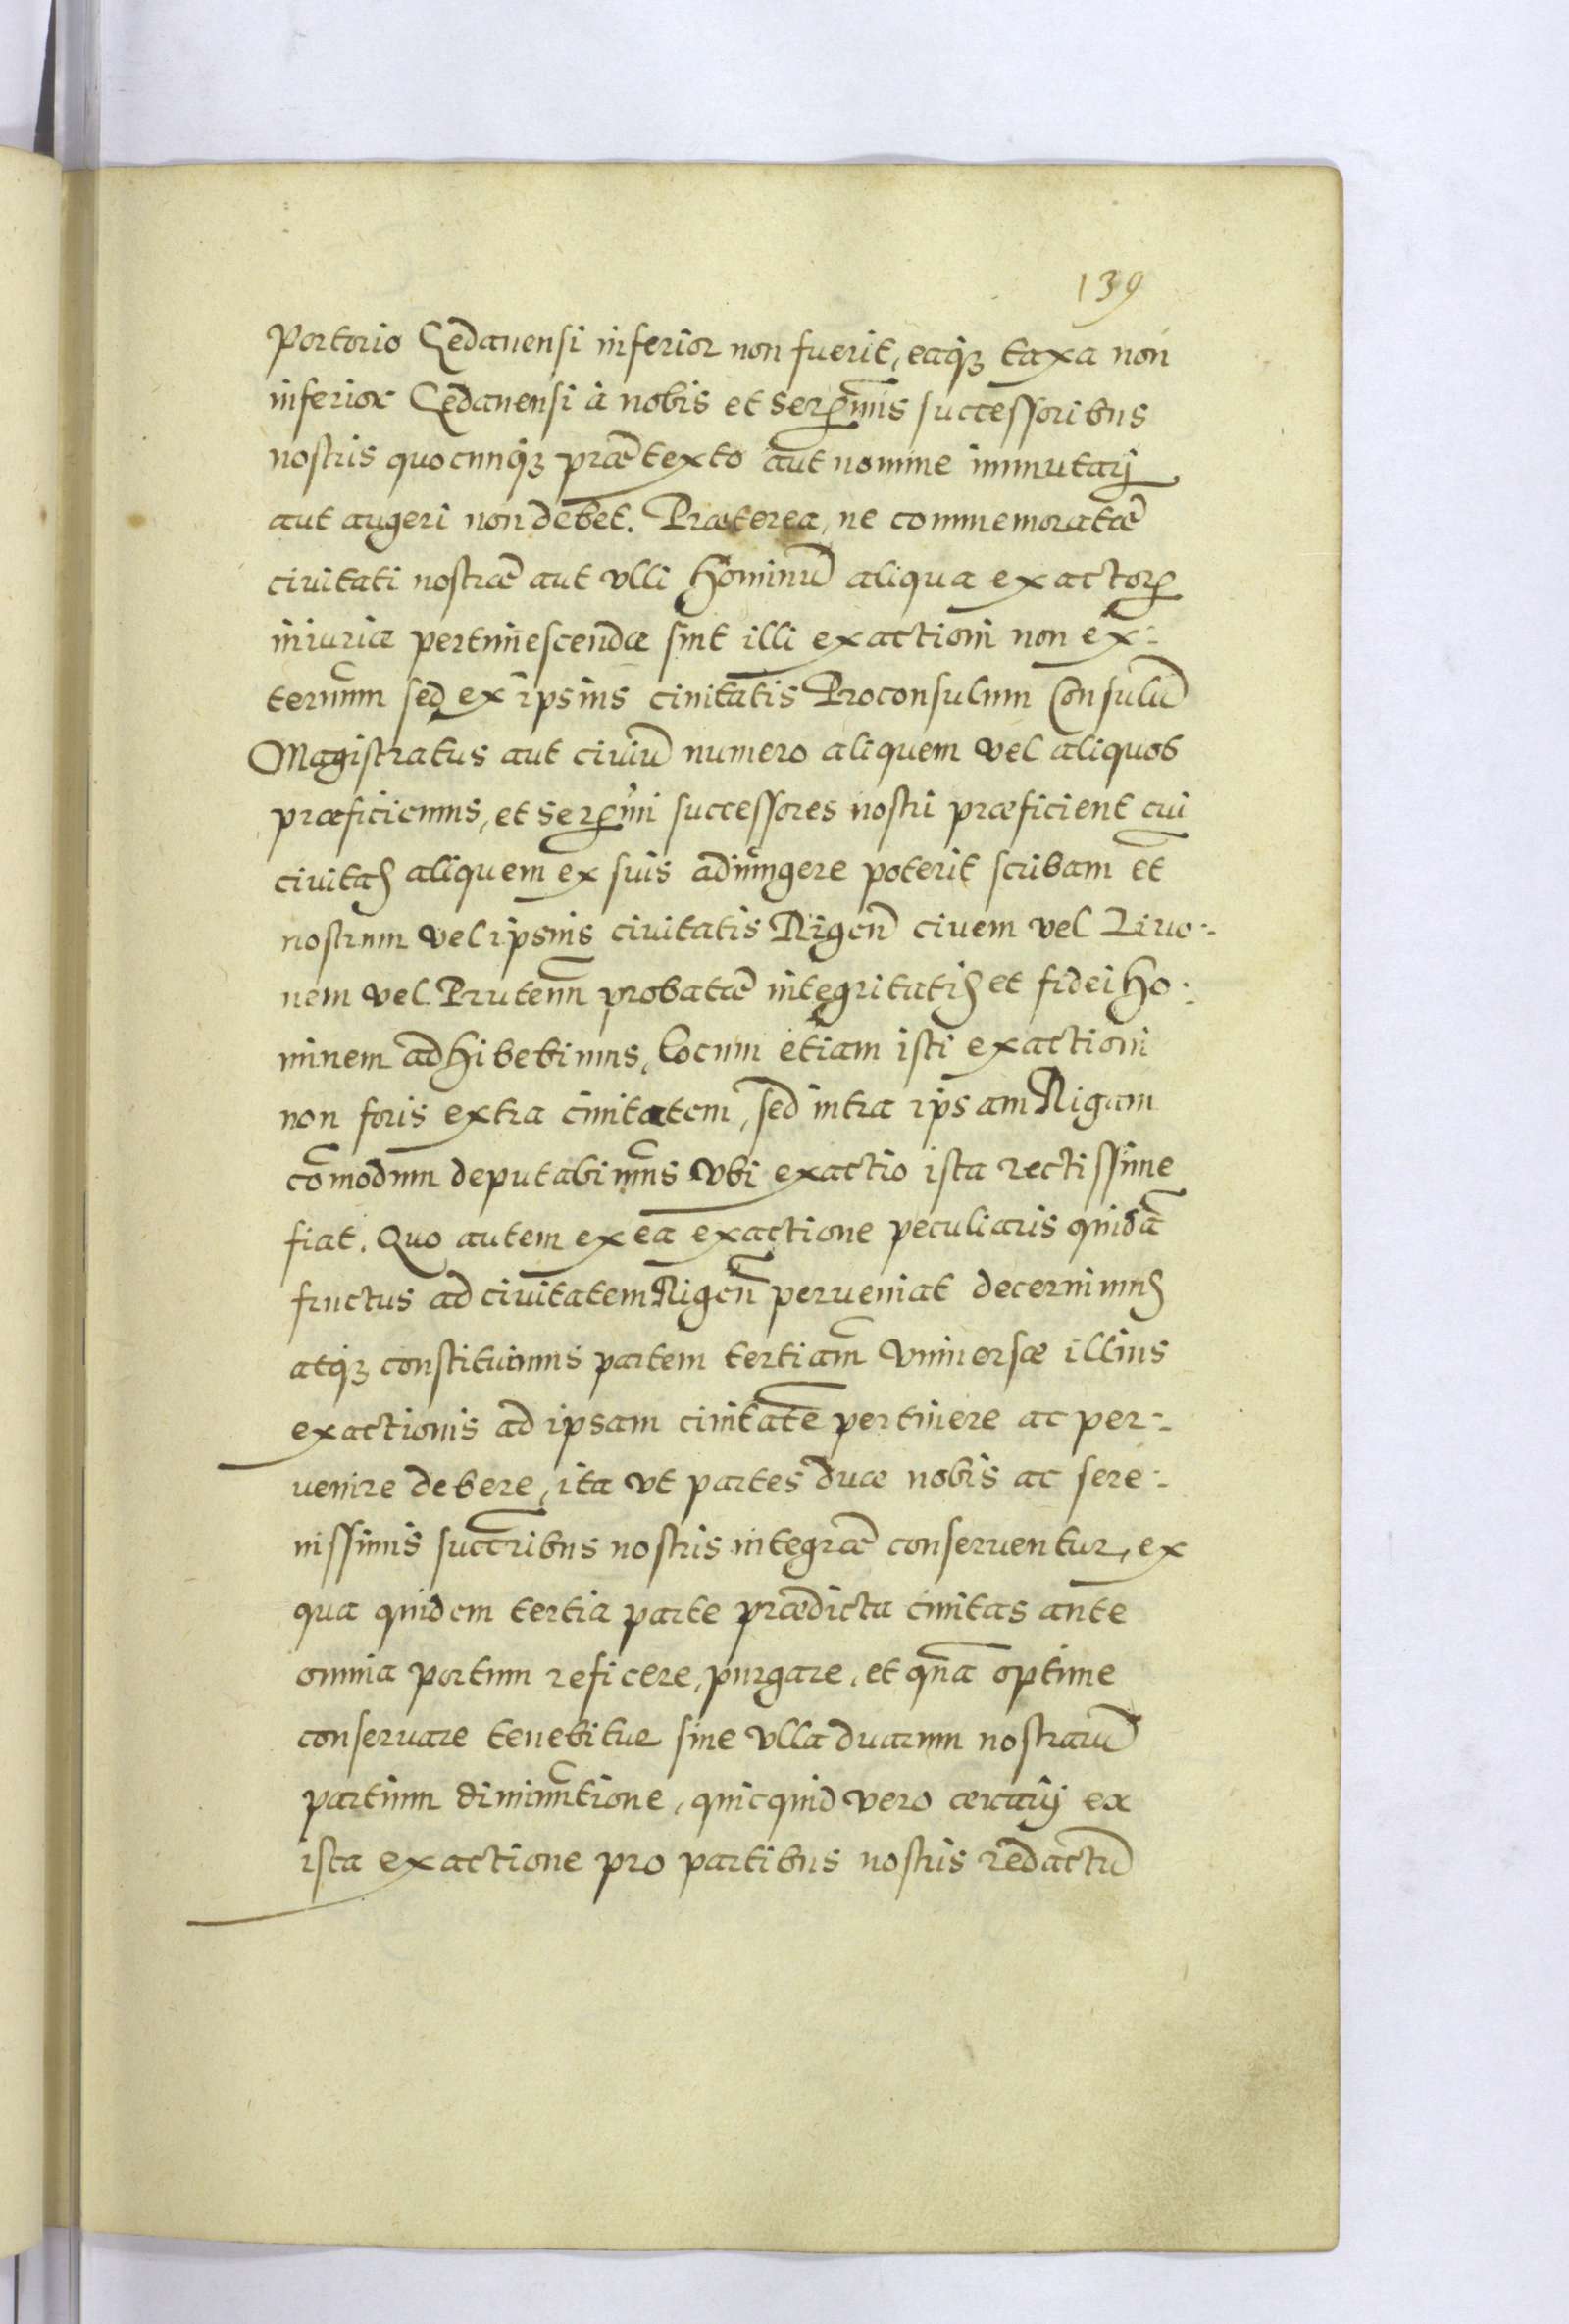 139
Portorio Gedanensi inferior non fuerit, eaq̃ꝫ taxa non
inferior Gedanensi à nobis et Serꝰmis successoribus
nostris quocunq̃ꝫ prætexto aut nomine immutarj
aut augeri non debet. Præterea, ne commemoratæ
civitati nostræ aut ulli hominũ aliqua exactorꝝ
iniuriæ pertimescendæ sint illi exactioni non ex-
ternum sed ex ipsius civitatis Proconsulum Consulũ
Magistratus aut civiũ numero aliquem vel aliquos
præficiemus, et Serꝰmi successores nostri præficient cui
civitas aliquem ex suis adiungere poterit scribam et
nostrum vel ipsius civitatis Rigeñ civem vel Livo-
nem vel Prutenũ probatæ integritatis et fidei ho-
minem adhibebimus, locum etiam isti exactioni
non foris extra civitatem, sed intra ipsam Rigam
cõmodum deputabimus ubi exactio ista rectissime
fiat. Quo autem ex ea exactione peculiaris quidã
fructus ad civitatem Rigeñ perveniat decernimus
atq̃ꝫ constituimus partem tertiam universæ illius
exactionis ad ipsam civitatẽ pertinere ac per-
venire debere, ita ut partes duæ nobis ac sere-
nissimis succrĩbus nostris integræ conserventur, ex
qua quidem tertia parte prædicta civitas ante
omnia portum reficere, purgare, et qũa optime
conservare tenebitur sine ulla duarum nostrarũ
partium diminutione, quicquid vero ærarij ex
ista exactione pro partibus nostris redactũ